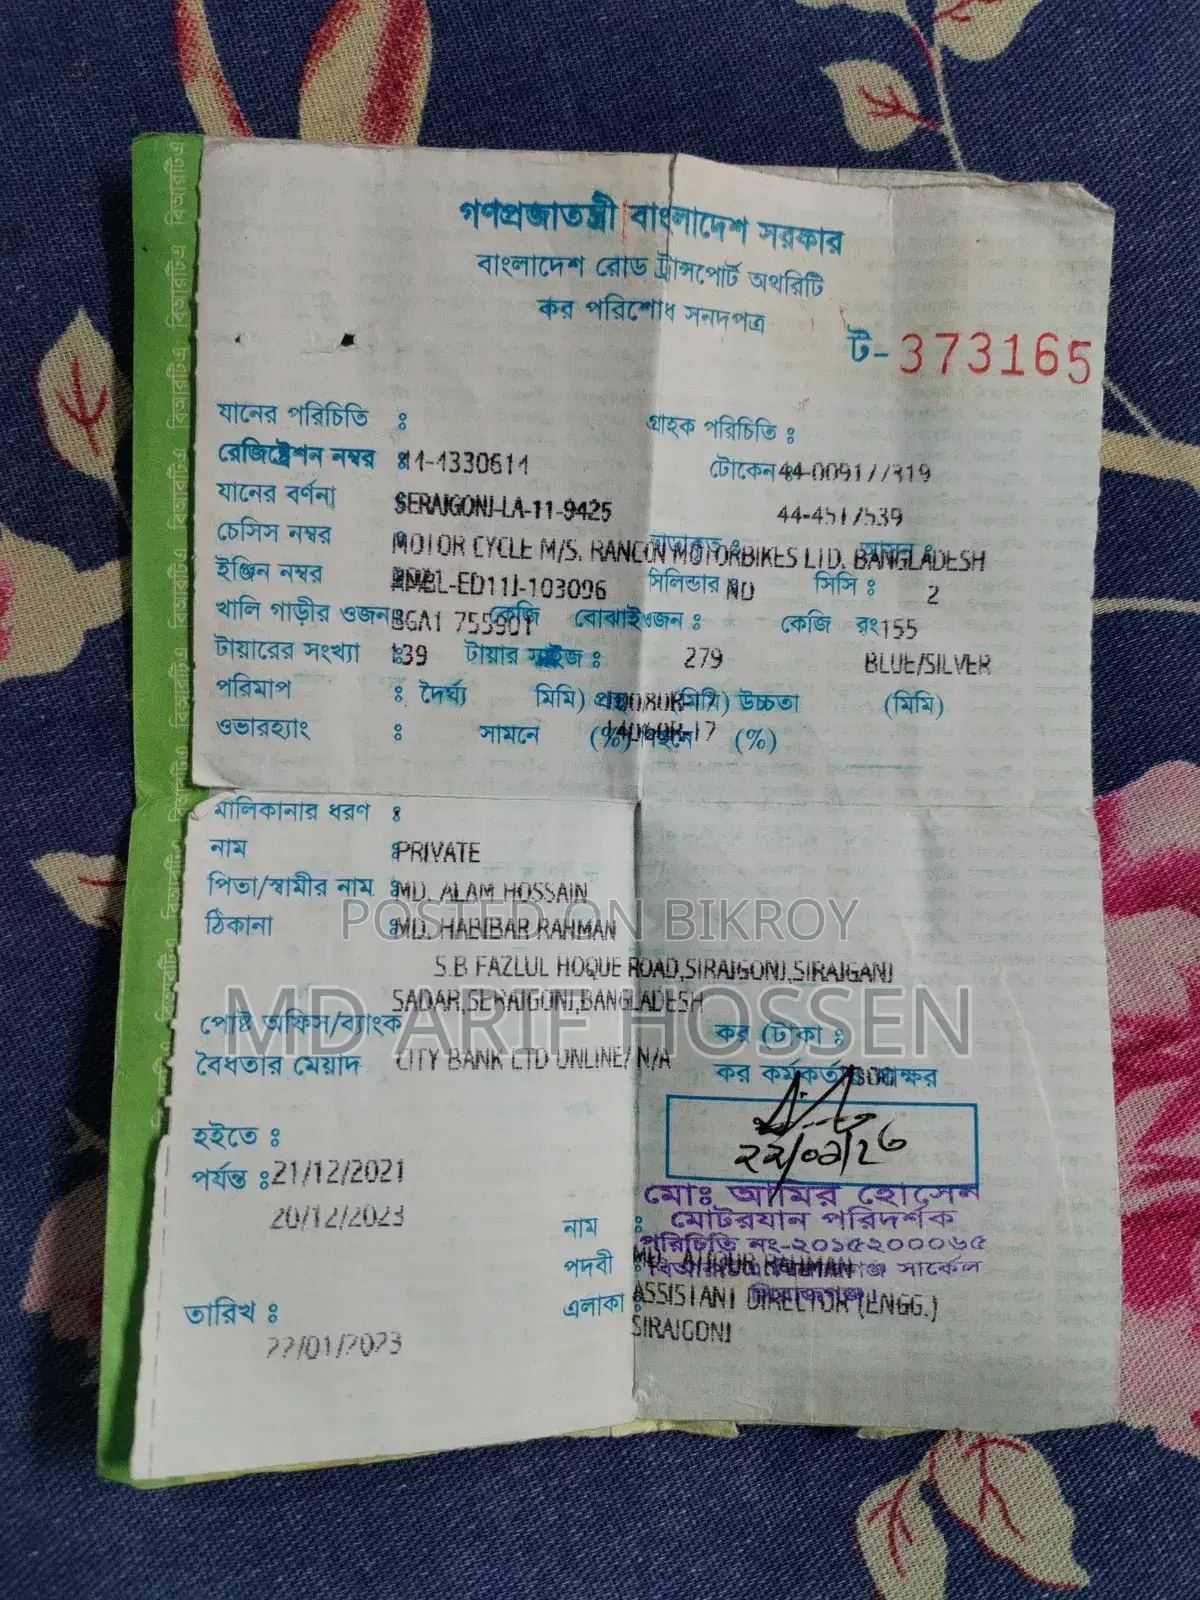 গণপ্রজাতন্ত্রী বাংলাদেশ সরকার
বাংলাদেশ রোড ট্রান্সপোর্ট অথরিটি
কর পরিশোধ সনদপত্র
ট-373165
যানের পরিচিতি :
গ্রাহক পরিচিতি :
রেজিষ্ট্রেশন নম্বর : 11-1330611
টোকেন
যানের বর্ণনা SERAIGONJ-LA-11-9425
চেসিস নম্বর MOTOR CYCLE M/S. RANCON MOTORBIKES LTD. BANGLADESH
ইঞ্জিন নম্বর -ED11J-103096 সিলিন্ডার : ND সিসি : 2
খালি গাড়ীর ওজন BGA1 755901 কেজি বোঝাই ওজন : কেজি রং 155
টায়ারের সংখ্যা : 139 টায়ার সাইজ : 279 BLUE/SILVER
পরিমাপ : দৈর্ঘ্য মিমি) মিমি) উচ্চতা (মিমি)
ওভারহ্যাং : সামনে (%) (%)
মালিকানার ধরণ :
নাম : PRIVATE
পিতা/স্বামীর নাম : MD. ALAM HOSSAIN
ঠিকানা : MD. HABIBAR RAHMAN
POSTED ON BIKROY
S.B FAZLUL HOQUE ROAD,SIRAJGONJ,SIRAJGANJ
SADAR,SERAIGONJ,BANGLADESH
MD ARIF HOSSEN
পোষ্ট অফিস/ব্যাংক
কর (টাকা :
বৈধতার মেয়াদ CITY BANK LTD ONLINE/ N/A
কর কর্মকর্তার স্বাক্ষর
হইতে :
পর্যন্ত : 21/12/2021
20/12/2023
মোঃ আমির হোসেন
মোটরযান পরিদর্শক
পরিচিতি নং-২০১৫২০০০৬৫
সার্কেল
নাম :
পদবী : RAHMAN
এলাকা : ASSISTANT DIRECTOR (ENGG.)
SIRAJGONJ
তারিখ :
22/01/2023